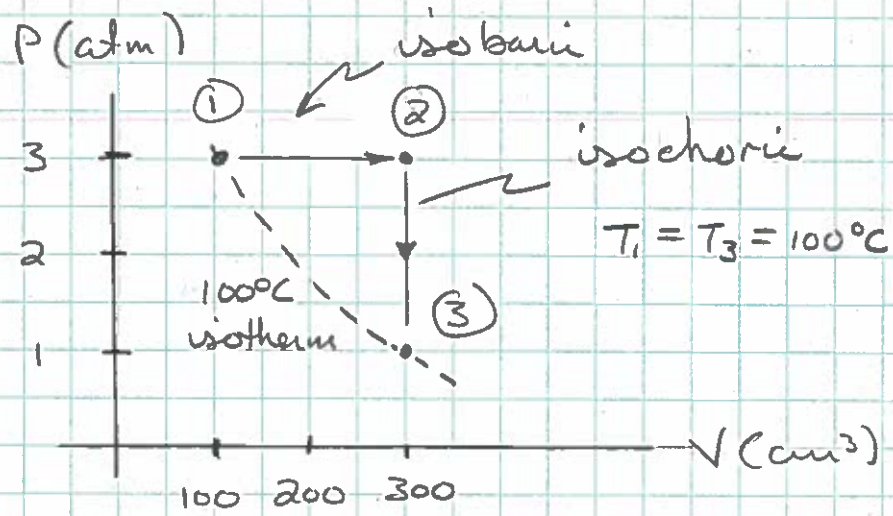 P (atm)
isobaric
①
②
3
isochoric
T₁ = T₃ = 100°C
2
100°C
isotherm
③
1
V (cm³)
100 200 300